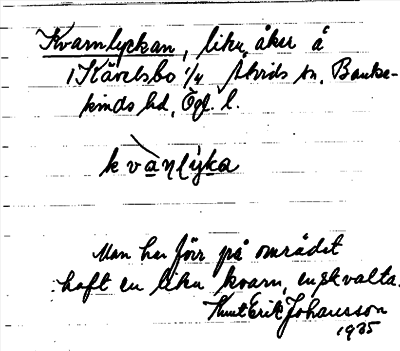 Kvarnlyckan, liten åker å
1 Kärelsbo 1/4 Åtvids sn, Banke-
kinds hd, Ögl. l.
kvanlyka
Man har förr på området
haft en liten kvarn, en skvalta.
Knut Erik Johansson
1935